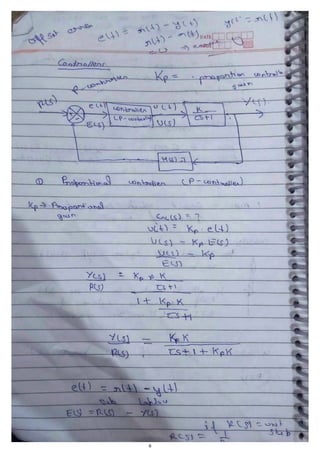 offset error e(t) = r(t) - y(t) y(t) = r(t)
r(t) - r(t)
= 0
Controllers
P-controller Kp = proportion controller gain
R(s) e(t) controller U(t) K Y(s)
E(s) (P-control) U(s) τs+1
H(s)=1
① Proportional controller (P-controller)
Kp → Proportional gain
Gc(s) = ?
u(t) = Kp e(t)
U(s) = Kp E(s)
U(s) = Kp
E(s)
Y(s) = Kp × K
R(s) τs+1
1 + Kp K
τs+1
Y(s) = Kp K
R(s) τs+1+KpK
e(t) = r(t) - y(t)
E(s) = R(s) - Y(s)
if R(s) = unit step
R(s) = 1
6